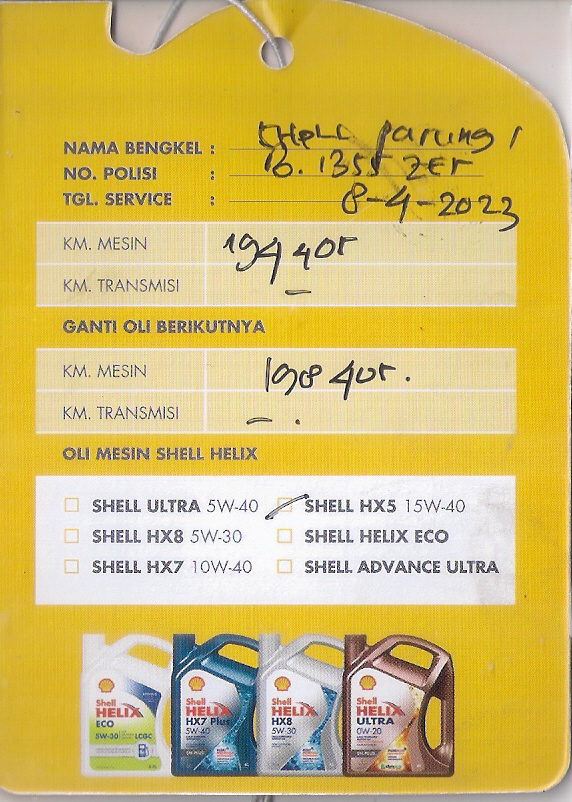 NAMA BENGKEL : SHELL Parung 1
NO. POLISI : B. 1355 ZET
TGL. SERVICE : 8-4-2023
KM. MESIN 194 405
KM. TRANSMISI –
GANTI OLI BERIKUTNYA
KM. MESIN 198 405.
KM. TRANSMISI – .
OLI MESIN SHELL HELIX
SHELL ULTRA 5W-40 SHELL HX5 15W-40
SHELL HX8 5W-30 SHELL HELIX ECO
SHELL HX7 10W-40 SHELL ADVANCE ULTRA
Shell HELIX ECO 5W-30 LCGC
Shell HELIX HX7 Plus 5W-40
Shell HELIX HX8 5W-30
Shell HELIX ULTRA 0W-20